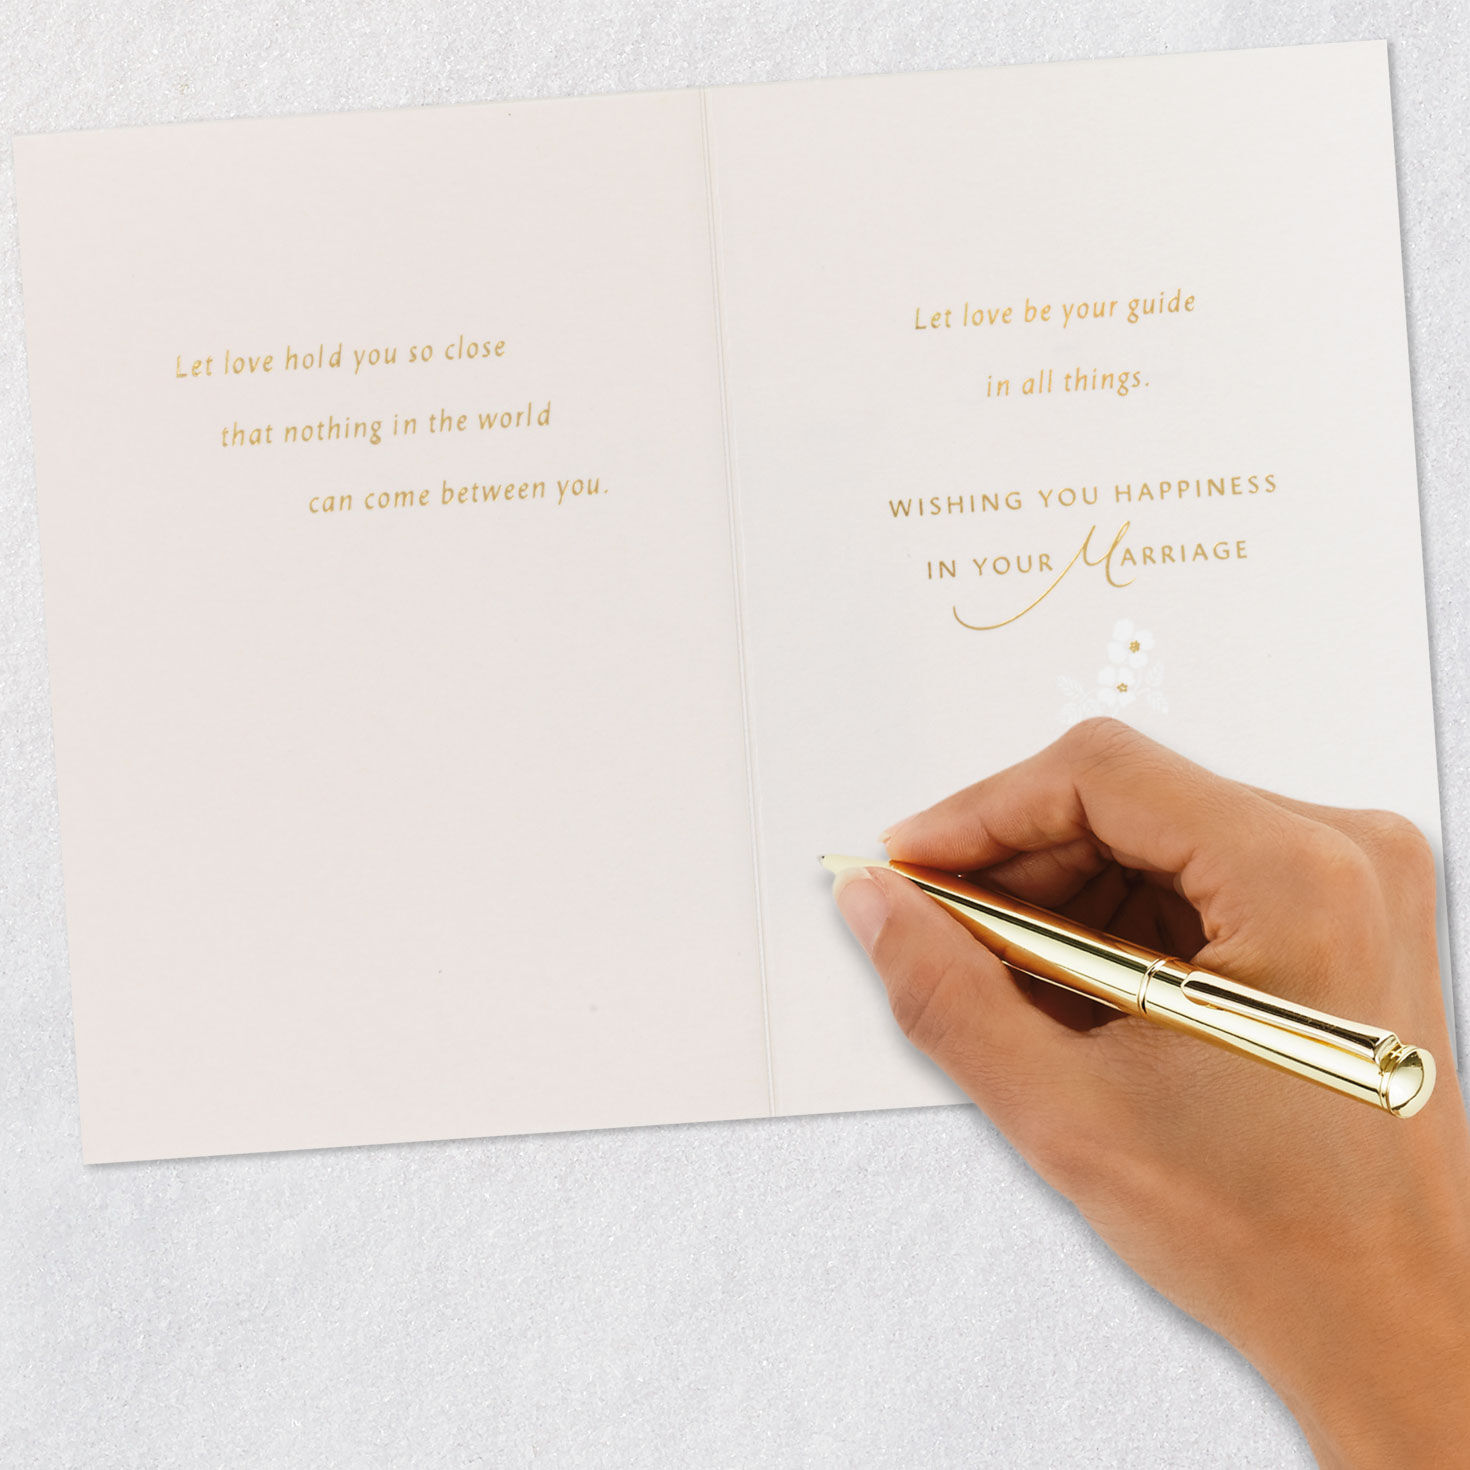 Let love hold you so close
that nothing in the world
can come between you.
Let love be your guide
in all things.
WISHING YOU HAPPINESS
IN YOUR MARRIAGE